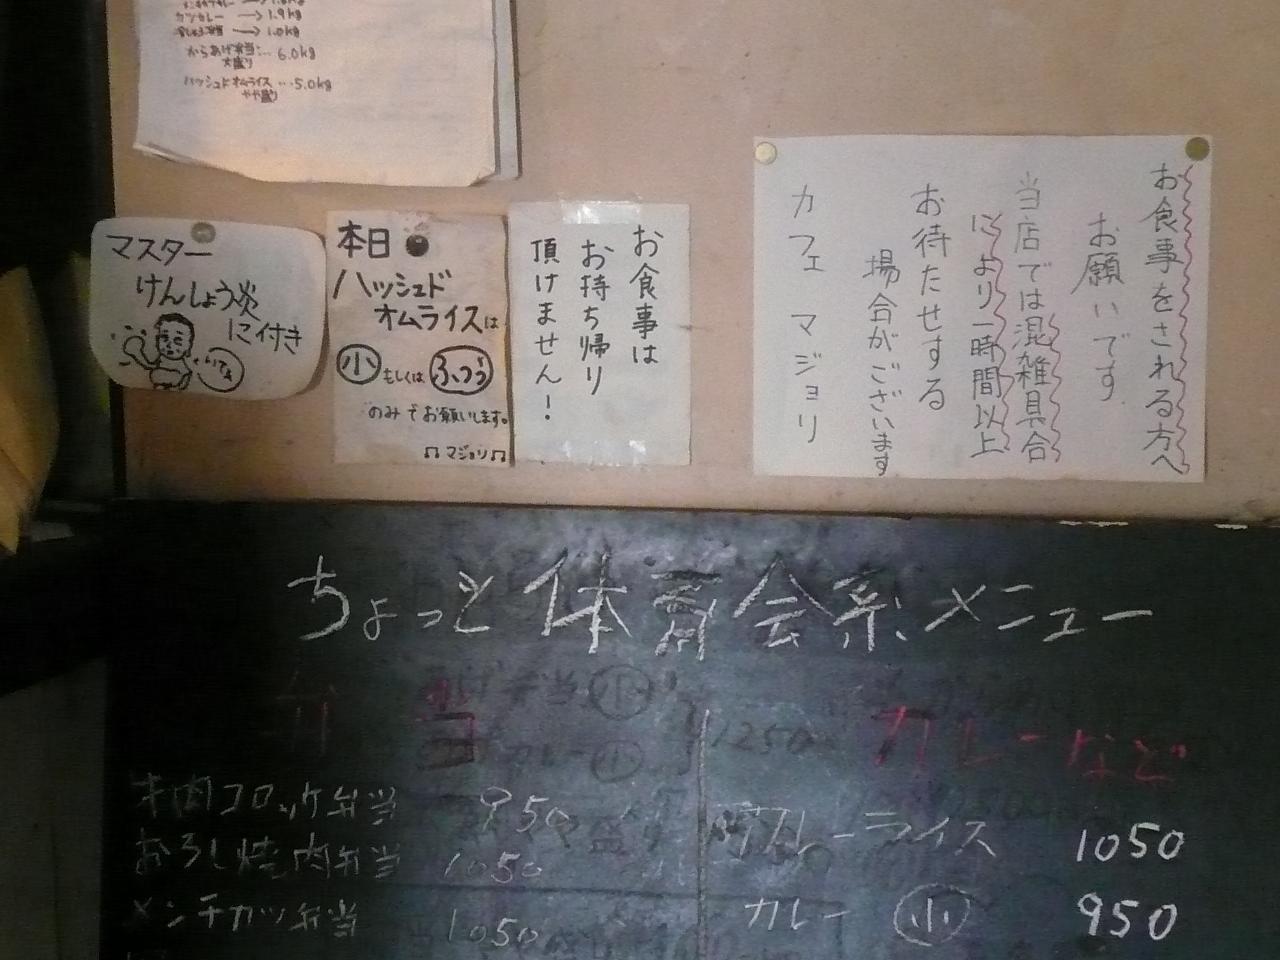 カツカレー → 1.9kg
→ 1.0kg
からあげ弁当… 6.0kg
大盛り
ハッシュドオムライス …5.0kg
やや盛り
マスター
けんしょう炎
に付き
本日
ハッシュド
オムライスは
小 もしくは ふつう
のみでお願いします。
♫ マジョリ ♫
お食事は
お持ち帰り
頂けません!
お食事をされる方へ
お願いです
当店では混雑具合
により一時間以上
お待たせする
場合がございます
カフェ マジョリ
ちょっと体育会系メニュー
弁当
牛肉コロッケ弁当 950
おろし焼肉弁当 1050
メンチカツ弁当 1050
カレーなど
カレーライス 1050
カレー 小 950